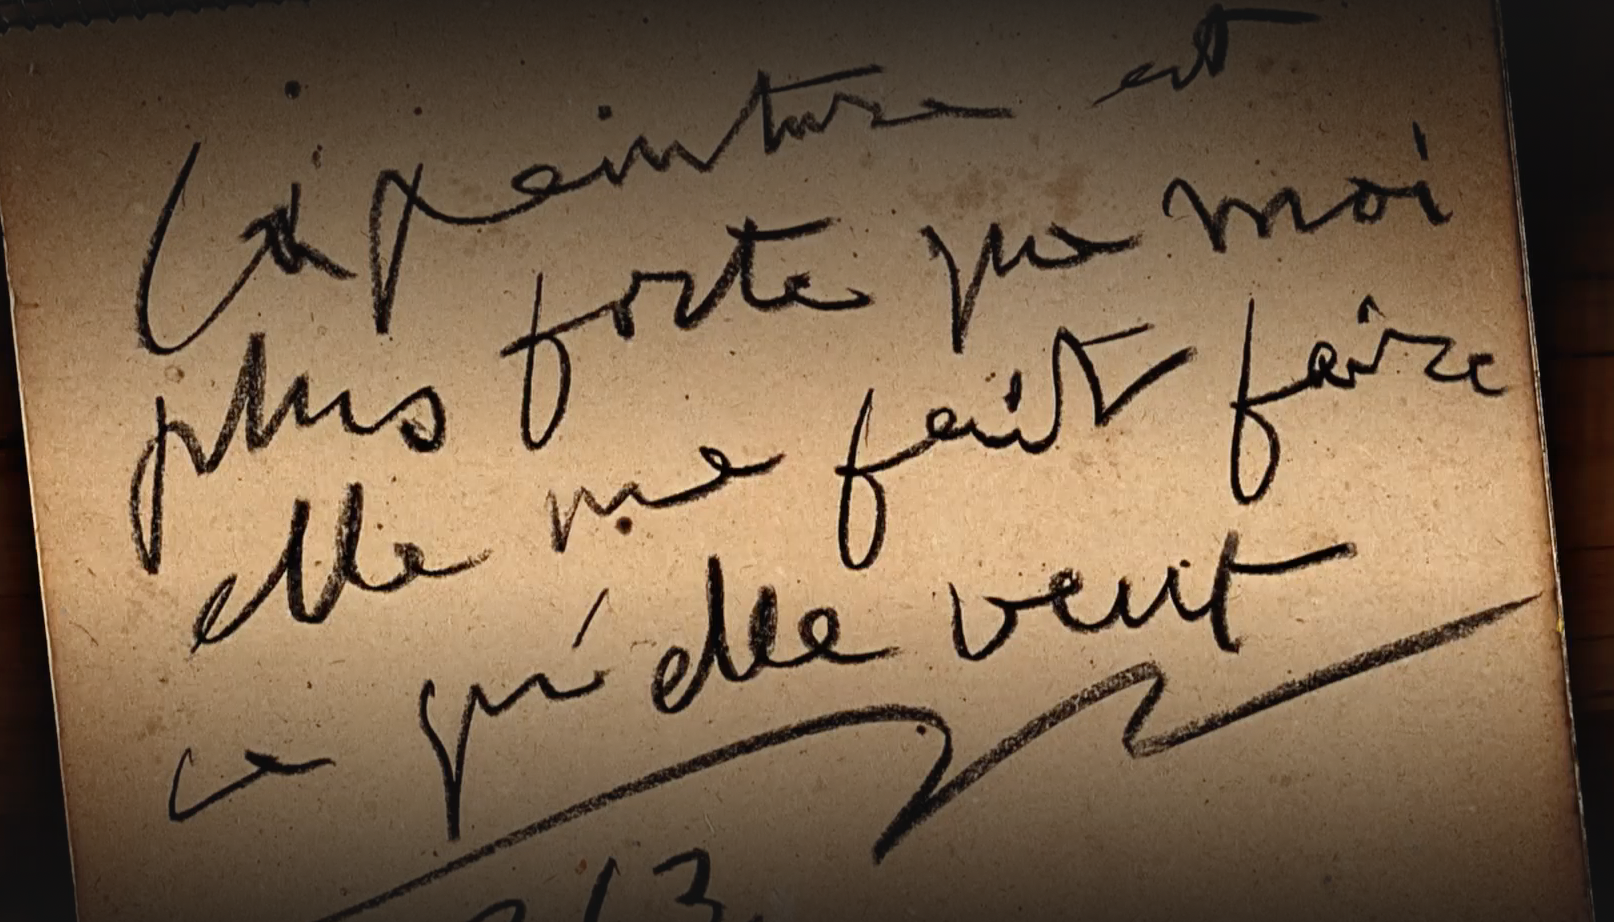 La peinture est
plus forte que moi
elle me fait faire
ce qu'elle veut